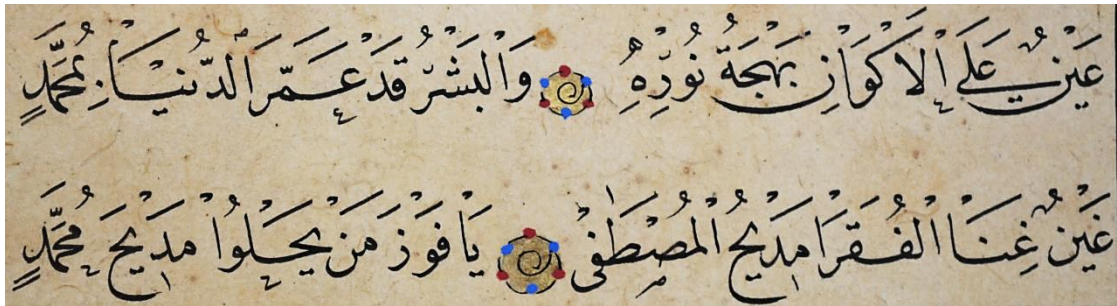 عَيْنٌ عَلَى الْاَكْوَانِ بَهْجَةُ نُوْرِهِ ۞ وَالْبَشْرُ قَدْ عَمَّرَ الدُّنْيَا بِمُحَمَّدٍ
غَيْنٌ غِنَا الْفُقَرَا مَدِيْحُ الْمُصْطَفٰى ۞ يَا فَوْزَ مَنْ يَحْلُوْا مَدِيْحَ مُحَمَّدٍ